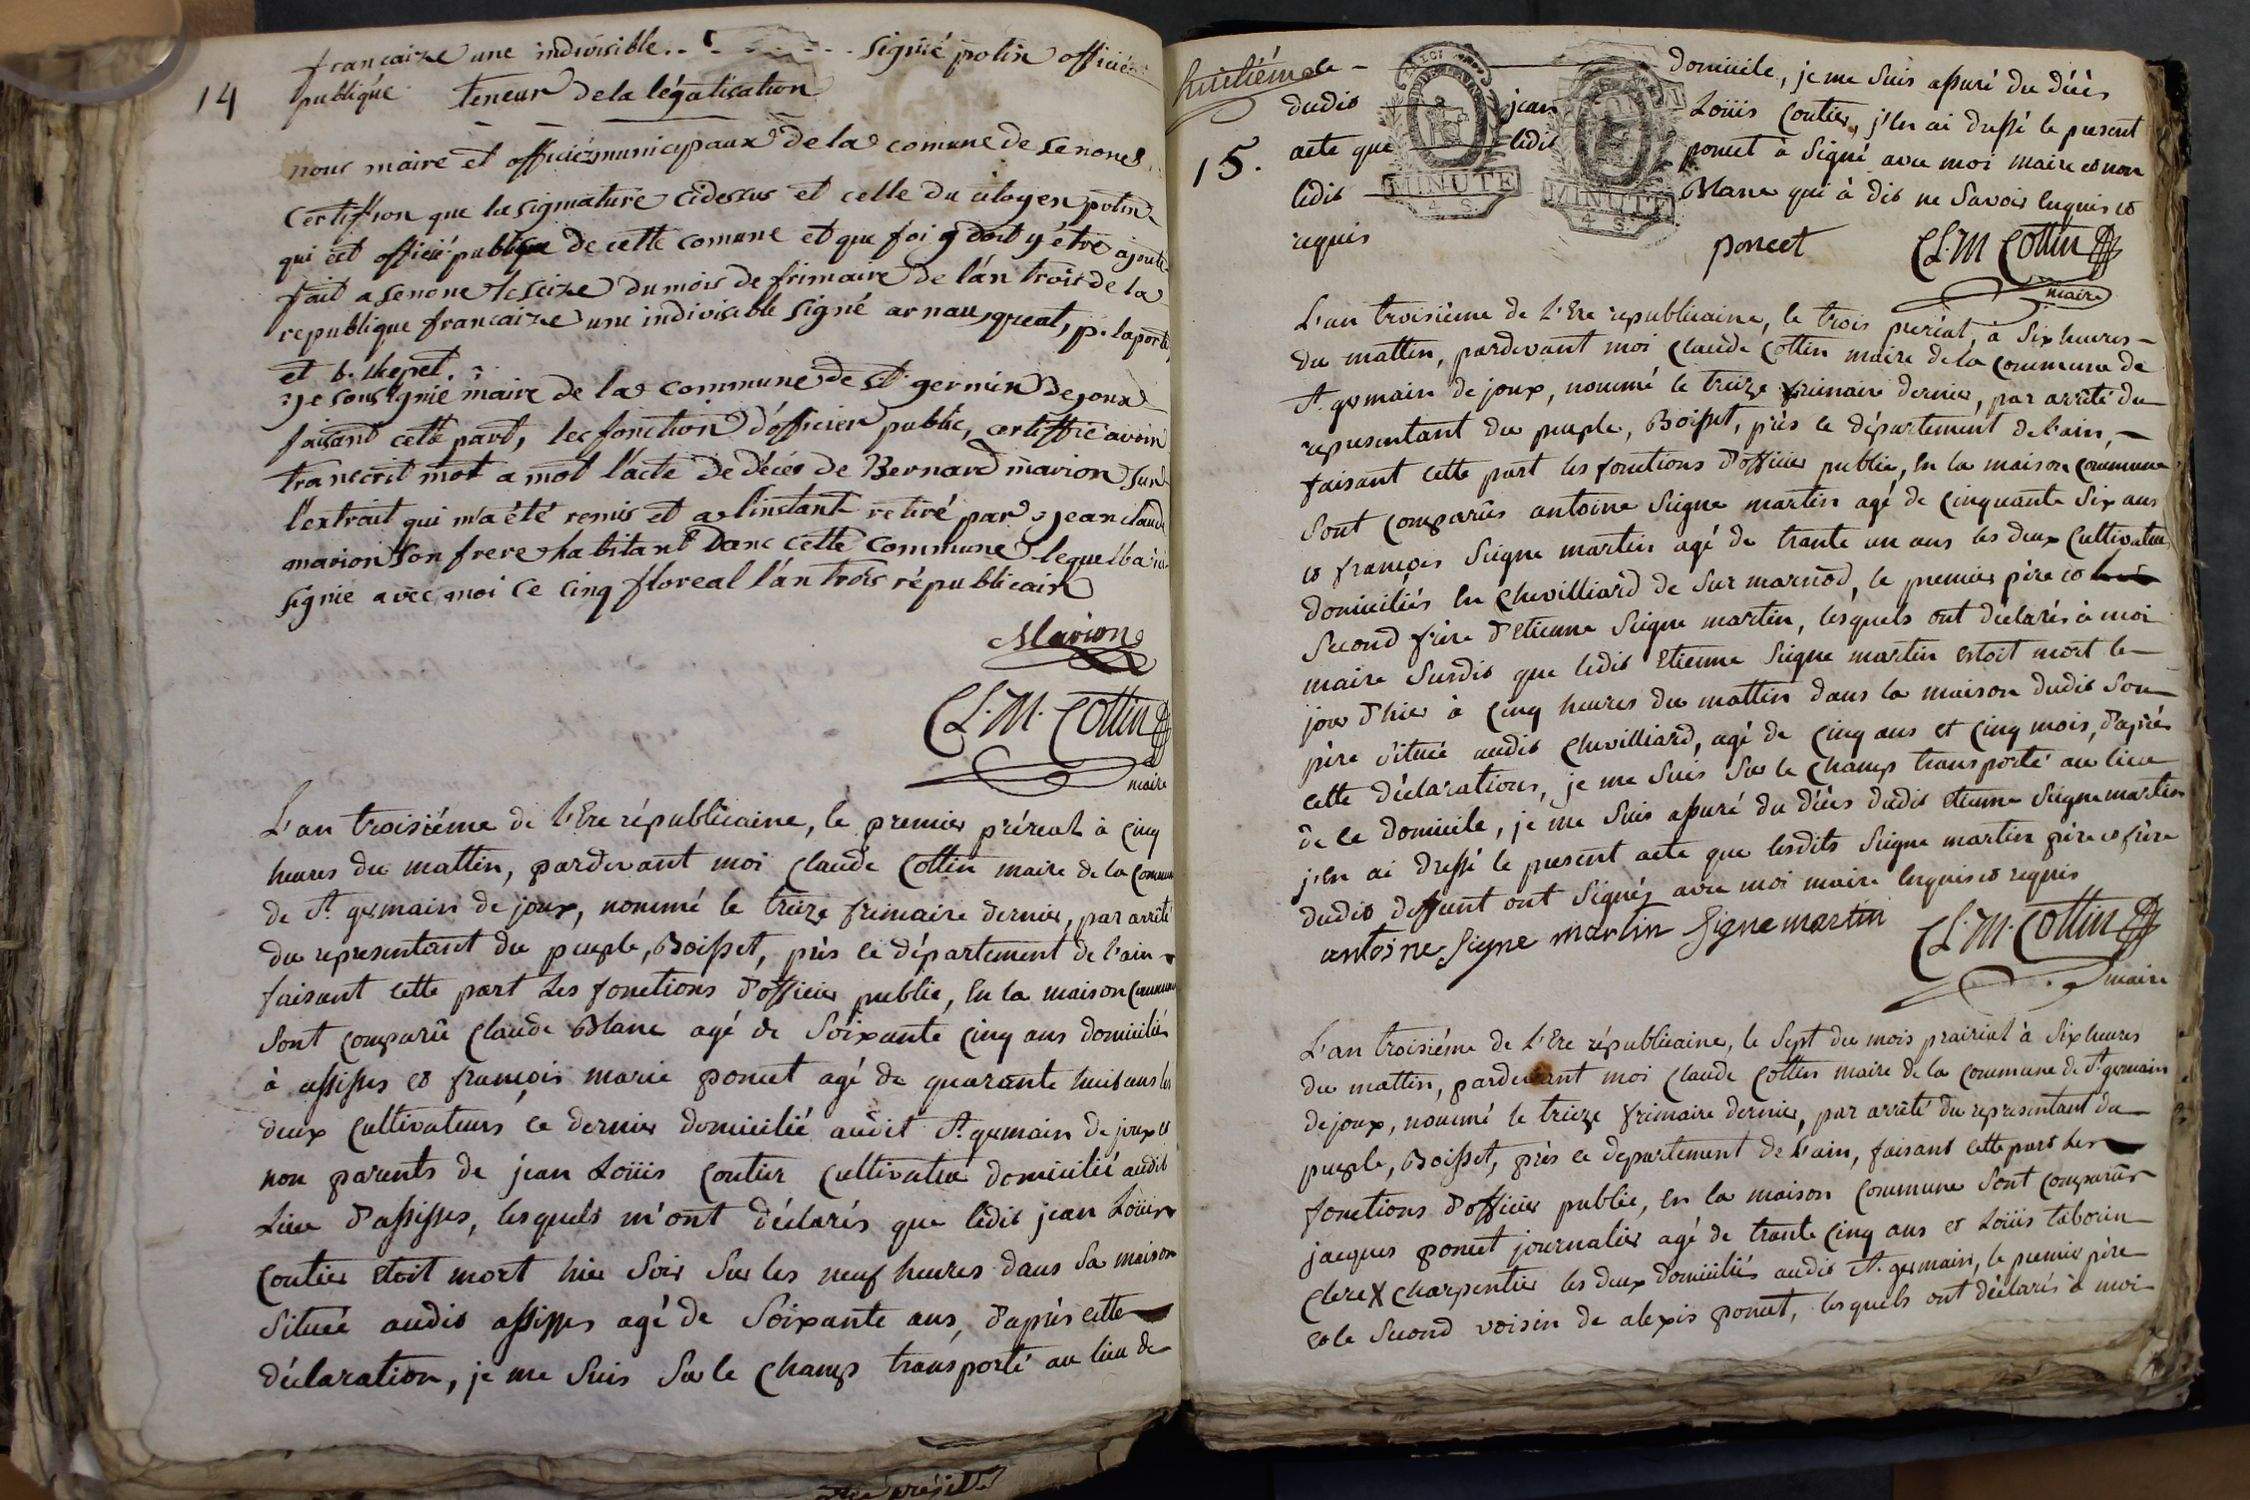 francaize une indivisible. . - - - . signié potin officiér
14 publiqué teneur de la légalisation
nous maire et officiézmunicipaux de la comune de senones
certiffion que la signature cidessus et celle du citoyen potin
qui est officié publique de cette comune et que foi y doit y être ajouté
fait a senone le seize du mois de frimaire de l'an trois de la
republique francaize une indivisible signé arnau, p. laporte,
et b.
Je sousignié maire de la commune de St. germin de joux
faisant cette part, les fonction d'officier public, certiffie avoir
transcrit mot a mot l'acte de déces de Bernard marion sur
l'extrait qui m'a été remis et a l'instant retiré par jean claude
marion son frere habitant dans cette commune lequel
signié avec moi ce cinq floreal l'an trois républicain
Marion
Cl. M. Cottin
maire
L'an troisiéme de l'Ere républicaine, le premier préreal à cinq
heures du mattin, pardevant moi claude Cottin maire de la commune
de St. germain de joux, nommé le treize frimaire dernier, par arrêté
du representant du peuple, Boisset, près ce département de l'ain
faisant cette part les fonctions d'officier public, En la maison commune
sont comparû claude Blanc agé de soixante cinq ans domicilié
à assisses et françois marie poncet agé de quarante huit ans les
deux cultivateurs ce dernier domicilié audit St. germain de joux et
non parents de jean Loüis coutier cultivateur domicilié audit
Lieu d'assisses, lesquels m'ont déclarés que ledit jean Loüis
coutier étoit mort hier soir sur les neuf heures dans sa maison
située audit assisses agé de soixante ans, d'après cette
déclaration, je me suis sur le champ transporté au lieu de
huitiéme
domicile, je me suis assuré du décès
dudit jean Loüis coutier, j'En ai dressé le present
15. acte que ledit poncet à signé avec moi maire et non
ledit Blanc qui à dit ne savoir Enquis et
requis
MINUTE
4 S.
MINUTE
4 S.
poncet Cl. M Cottin
maire
L'an troisiéme de l'Ere republicaine, le trois preréal, à six heures
du mattin, pardevant moi claude Cottin maire de la commune de
St. germain de joux, nommé le treize frimaire dernier, par arrêté du
representant du peuple, Boisset, près ce département de l'ain,
faisant cette part les fonctions d'officier public, En la maison commune
sont comparûs antoine Seigne martin agé de cinquante six ans
et françois Seigne martin agé de trante un ans les deux cultivateurs
domiciliés En chevilliard de sur marnod, le premier père et
second frère d'Etienne Seigne martin, lesquels ont déclarés à moi
maire susdit que ledit Etienne Seigne martin estoit mort le
jour d'hier à cinq heures du mattin dans la maison dudit son
père située audit chevilliard, agé de cinq ans et cinq mois, d'après
cette déclarations, je me suis sur le champ transporté au lieu
de ce domicile, je me suis assuré du décès dudit Etienne Seigne martin
j'En ai dressé le present acte que lesdits Seigne martin père et frère
dudit deffunt ont signéz avec moi maire Enquis et requis
antoine Signe martin Signe martin Cl. M. Cottin
maire
L'an troisiéme de l'Ere républicaine, le sept du mois prairial à six heures
du mattin, pardevant moi claude Cottin maire de la commune de St. germain
de joux, nommé le trieze frimaire dernier, par arrêté du representant du
peuple, Boisset, près ce departement de l'ain, faisant cette part les
fonctions d'officier public, En la maison commune sont comparûs
jacques poncet journalier agé de trante cinq ans et Loüis taborin
clerc charpentier les deux domiciliés audit St. germain, le premier père
et le second voisin de alexis poncet, lesquels ont déclarés à moi